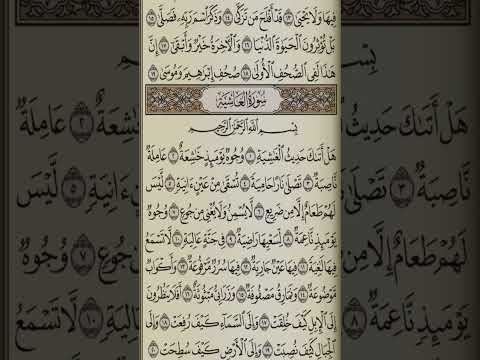 فِيهَا وَلَا يَحْيَىٰ ١٣ قَدْ أَفْلَحَ مَن تَزَكَّىٰ ١٤ وَذَكَرَ اسْمَ رَبِّهِ فَصَلَّىٰ ١٥
بَلْ تُؤْثِرُونَ الْحَيَوٰةَ الدُّنْيَا ١٦ وَالْآخِرَةُ خَيْرٌ وَأَبْقَىٰ ١٧ إِنَّ
هَٰذَا لَفِي الصُّحُفِ الْأُولَىٰ ١٨ صُحُفِ إِبْرَٰهِيمَ وَمُوسَىٰ ١٩
سُورَةُ الْغَاشِيَةِ
بِسْمِ اللَّهِ الرَّحْمَٰنِ الرَّحِيمِ
هَلْ أَتَىٰكَ حَدِيثُ الْغَٰشِيَةِ ١ وُجُوهٌ يَوْمَئِذٍ خَٰشِعَةٌ ٢ عَامِلَةٌ
نَّاصِبَةٌ ٣ تَصْلَىٰ نَارًا حَامِيَةً ٤ تُسْقَىٰ مِنْ عَيْنٍ ءَانِيَةٍ ٥ لَّيْسَ
لَهُمْ طَعَامٌ إِلَّا مِن ضَرِيعٍ ٦ لَّا يُسْمِنُ وَلَا يُغْنِي مِن جُوعٍ ٧ وُجُوهٌ
يَوْمَئِذٍ نَّاعِمَةٌ ٨ لِّسَعْيِهَا رَاضِيَةٌ ٩ فِي جَنَّةٍ عَالِيَةٍ ١٠ لَّا تَسْمَعُ
فِيهَا لَٰغِيَةً ١١ فِيهَا عَيْنٌ جَارِيَةٌ ١٢ فِيهَا سُرُرٌ مَّرْفُوعَةٌ ١٣ وَأَكْوَابٌ
مَّوْضُوعَةٌ ١٤ وَنَمَارِقُ مَصْفُوفَةٌ ١٥ وَزَرَابِيُّ مَبْثُوثَةٌ ١٦ أَفَلَا يَنظُرُونَ
إِلَى الْإِبِلِ كَيْفَ خُلِقَتْ ١٧ وَإِلَى السَّمَاءِ كَيْفَ رُفِعَتْ ١٨ وَإِلَى
الْجِبَالِ كَيْفَ نُصِبَتْ ١٩ وَإِلَى الْأَرْضِ كَيْفَ سُطِحَتْ ٢٠